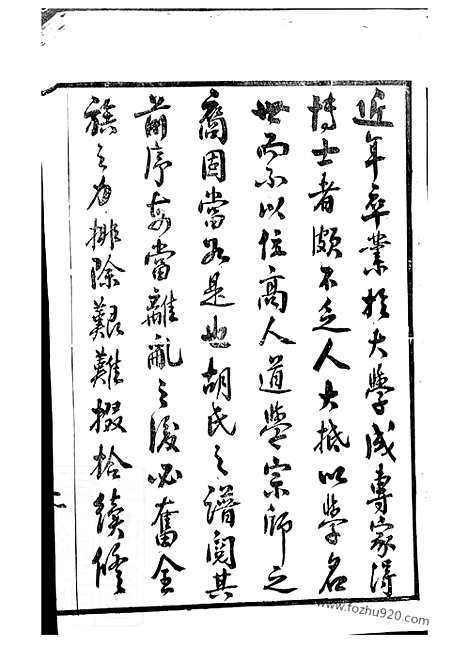 近年卒業於大學成專家得
博士者頗不乏人大抵以學名
世而不以位高人道學宗師之
裔固當如是也胡氏之譜閱其
前序每當離亂之後必奮全
族之力排除艱難掇拾續修
www.fozhu920.com